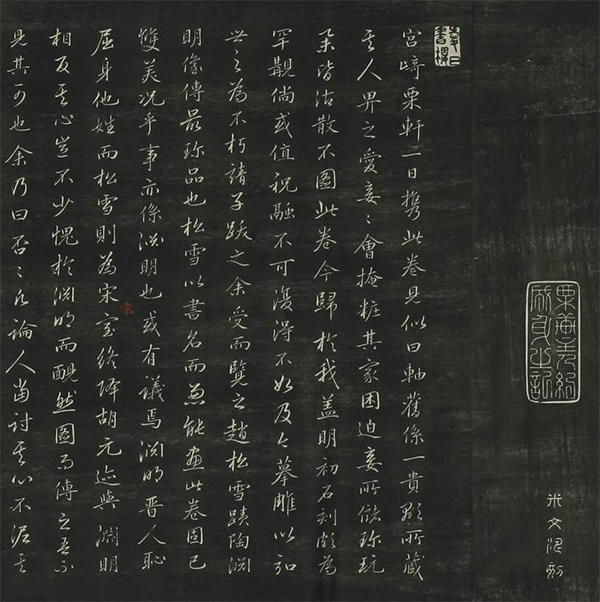 宮崎栗軒一日携此卷見似曰軸舊係一貴顯所藏
其人畀之愛妾々會掩粧其家困迫妾所儲珍玩
皆沽散不圖此卷今歸於我蓋明初石刻頗為
罕覯倘或值祝融不可復得不如及今摹雕以弘
世之為不朽請子跋之余受而覽之趙松雪蹟陶淵
明像傳最珍品也松雪以書名而兼能畫此卷固已
雙美況乎事亦係淵明也或有議焉淵明晉人恥
屈身他姓而松雪則為宋室終降胡元迹與淵明
相反其心豈不少愧於淵明而靦然圖而傳之吾不
見其可也余乃曰否々凡論人當討其心不泥其